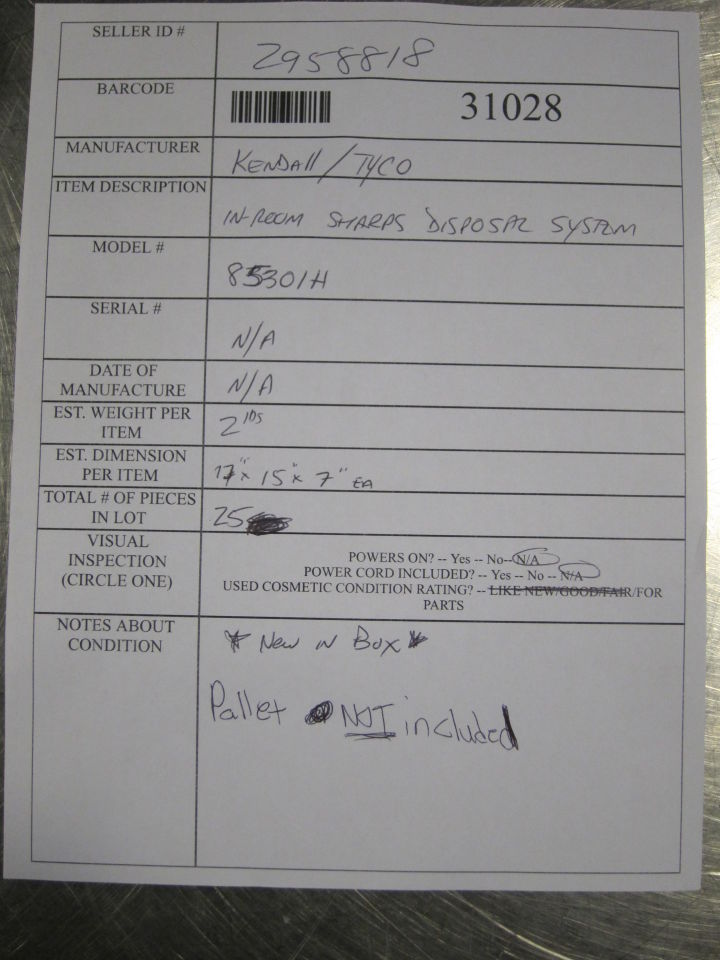 SELLER ID #
2958818
BARCODE
31028
MANUFACTURER
KENDAll / TYCO
ITEM DESCRIPTION
IN-ROOM SHARPS DISPOSAL SYSTEM
MODEL #
85301H
SERIAL #
N/A
DATE OF
MANUFACTURE
N/A
EST. WEIGHT PER
ITEM
2 lbs
EST. DIMENSION
PER ITEM
17" x 15" x 7" EA
TOTAL # OF PIECES
IN LOT
25
VISUAL
INSPECTION
(CIRCLE ONE)
POWERS ON? -- Yes -- No-- N/A
POWER CORD INCLUDED? -- Yes -- No -- N/A
USED COSMETIC CONDITION RATING? -- LIKE NEW/GOOD/FAIR/FOR
PARTS
NOTES ABOUT
CONDITION
* New in Box *
Pallet NOT included